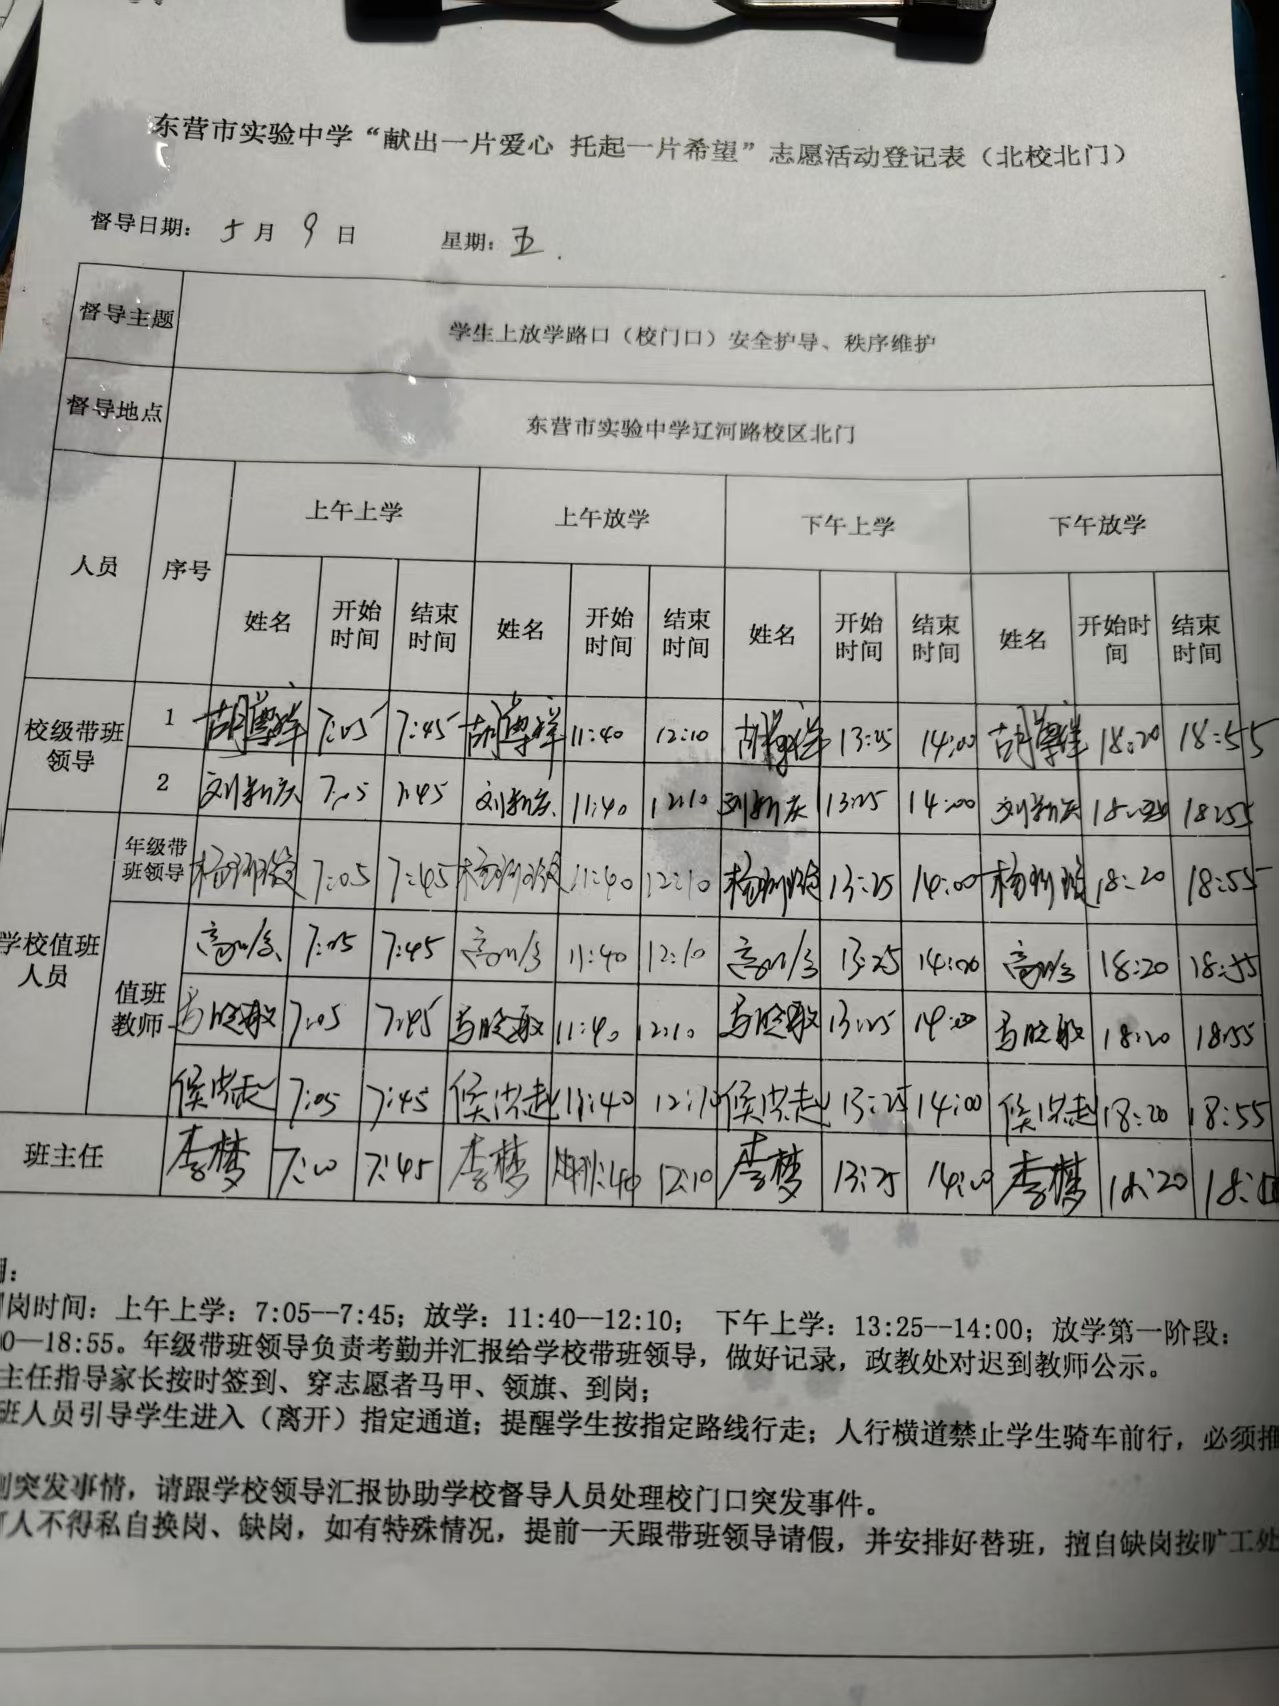 东营市实验中学“献出一片爱心 托起一片希望”志愿活动登记表（北校北门）
督导日期： 5月9日 星期：五.
督导主题 学生上放学路口（校门口）安全护导、秩序维护
督导地点 东营市实验中学辽河路校区北门
人员 序号 上午上学 上午放学 下午上学 下午放学
姓名 开始时间 结束时间 姓名 开始时间 结束时间 姓名 开始时间 结束时间 姓名 开始时间 结束时间
校级带班领导 1 7:05 7:45 11:40 12:10 13:25 14:00 18:20 18:55
2 刘新庆 7:05 7:45 刘新庆 11:40 12:10 刘新庆 13:25 14:00 刘新庆 18:20 18:55
学校值班人员 年级带班领导 7:05 7:45 11:40 12:10 13:25 14:00 18:20 18:55
值班教师 7:05 7:45 11:40 12:10 13:25 14:00 18:20 18:55
7:05 7:45 11:40 12:10 13:25 14:00 18:20 18:55
侯洪赴 7:05 7:45 侯洪赴 11:40 12:10 侯洪赴 13:25 14:00 侯洪赴 18:20 18:55
班主任 李梦 7:00 7:45 李梦 11:40 12:10 李梦 13:25 14:00 李梦 18:20
岗时间：上午上学：7:05--7:45；放学：11:40--12:10； 下午上学：13:25--14:00；放学第一阶段：
0—18:55。年级带班领导负责考勤并汇报给学校带班领导，做好记录，政教处对迟到教师公示。
主任指导家长按时签到、穿志愿者马甲、领旗、到岗；
班人员引导学生进入（离开）指定通道；提醒学生按指定路线行走；人行横道禁止学生骑车前行，必须推
突发事情，请跟学校领导汇报协助学校督导人员处理校门口突发事件。
人不得私自换岗、缺岗，如有特殊情况，提前一天跟带班领导请假，并安排好替班，擅自缺岗按旷工处